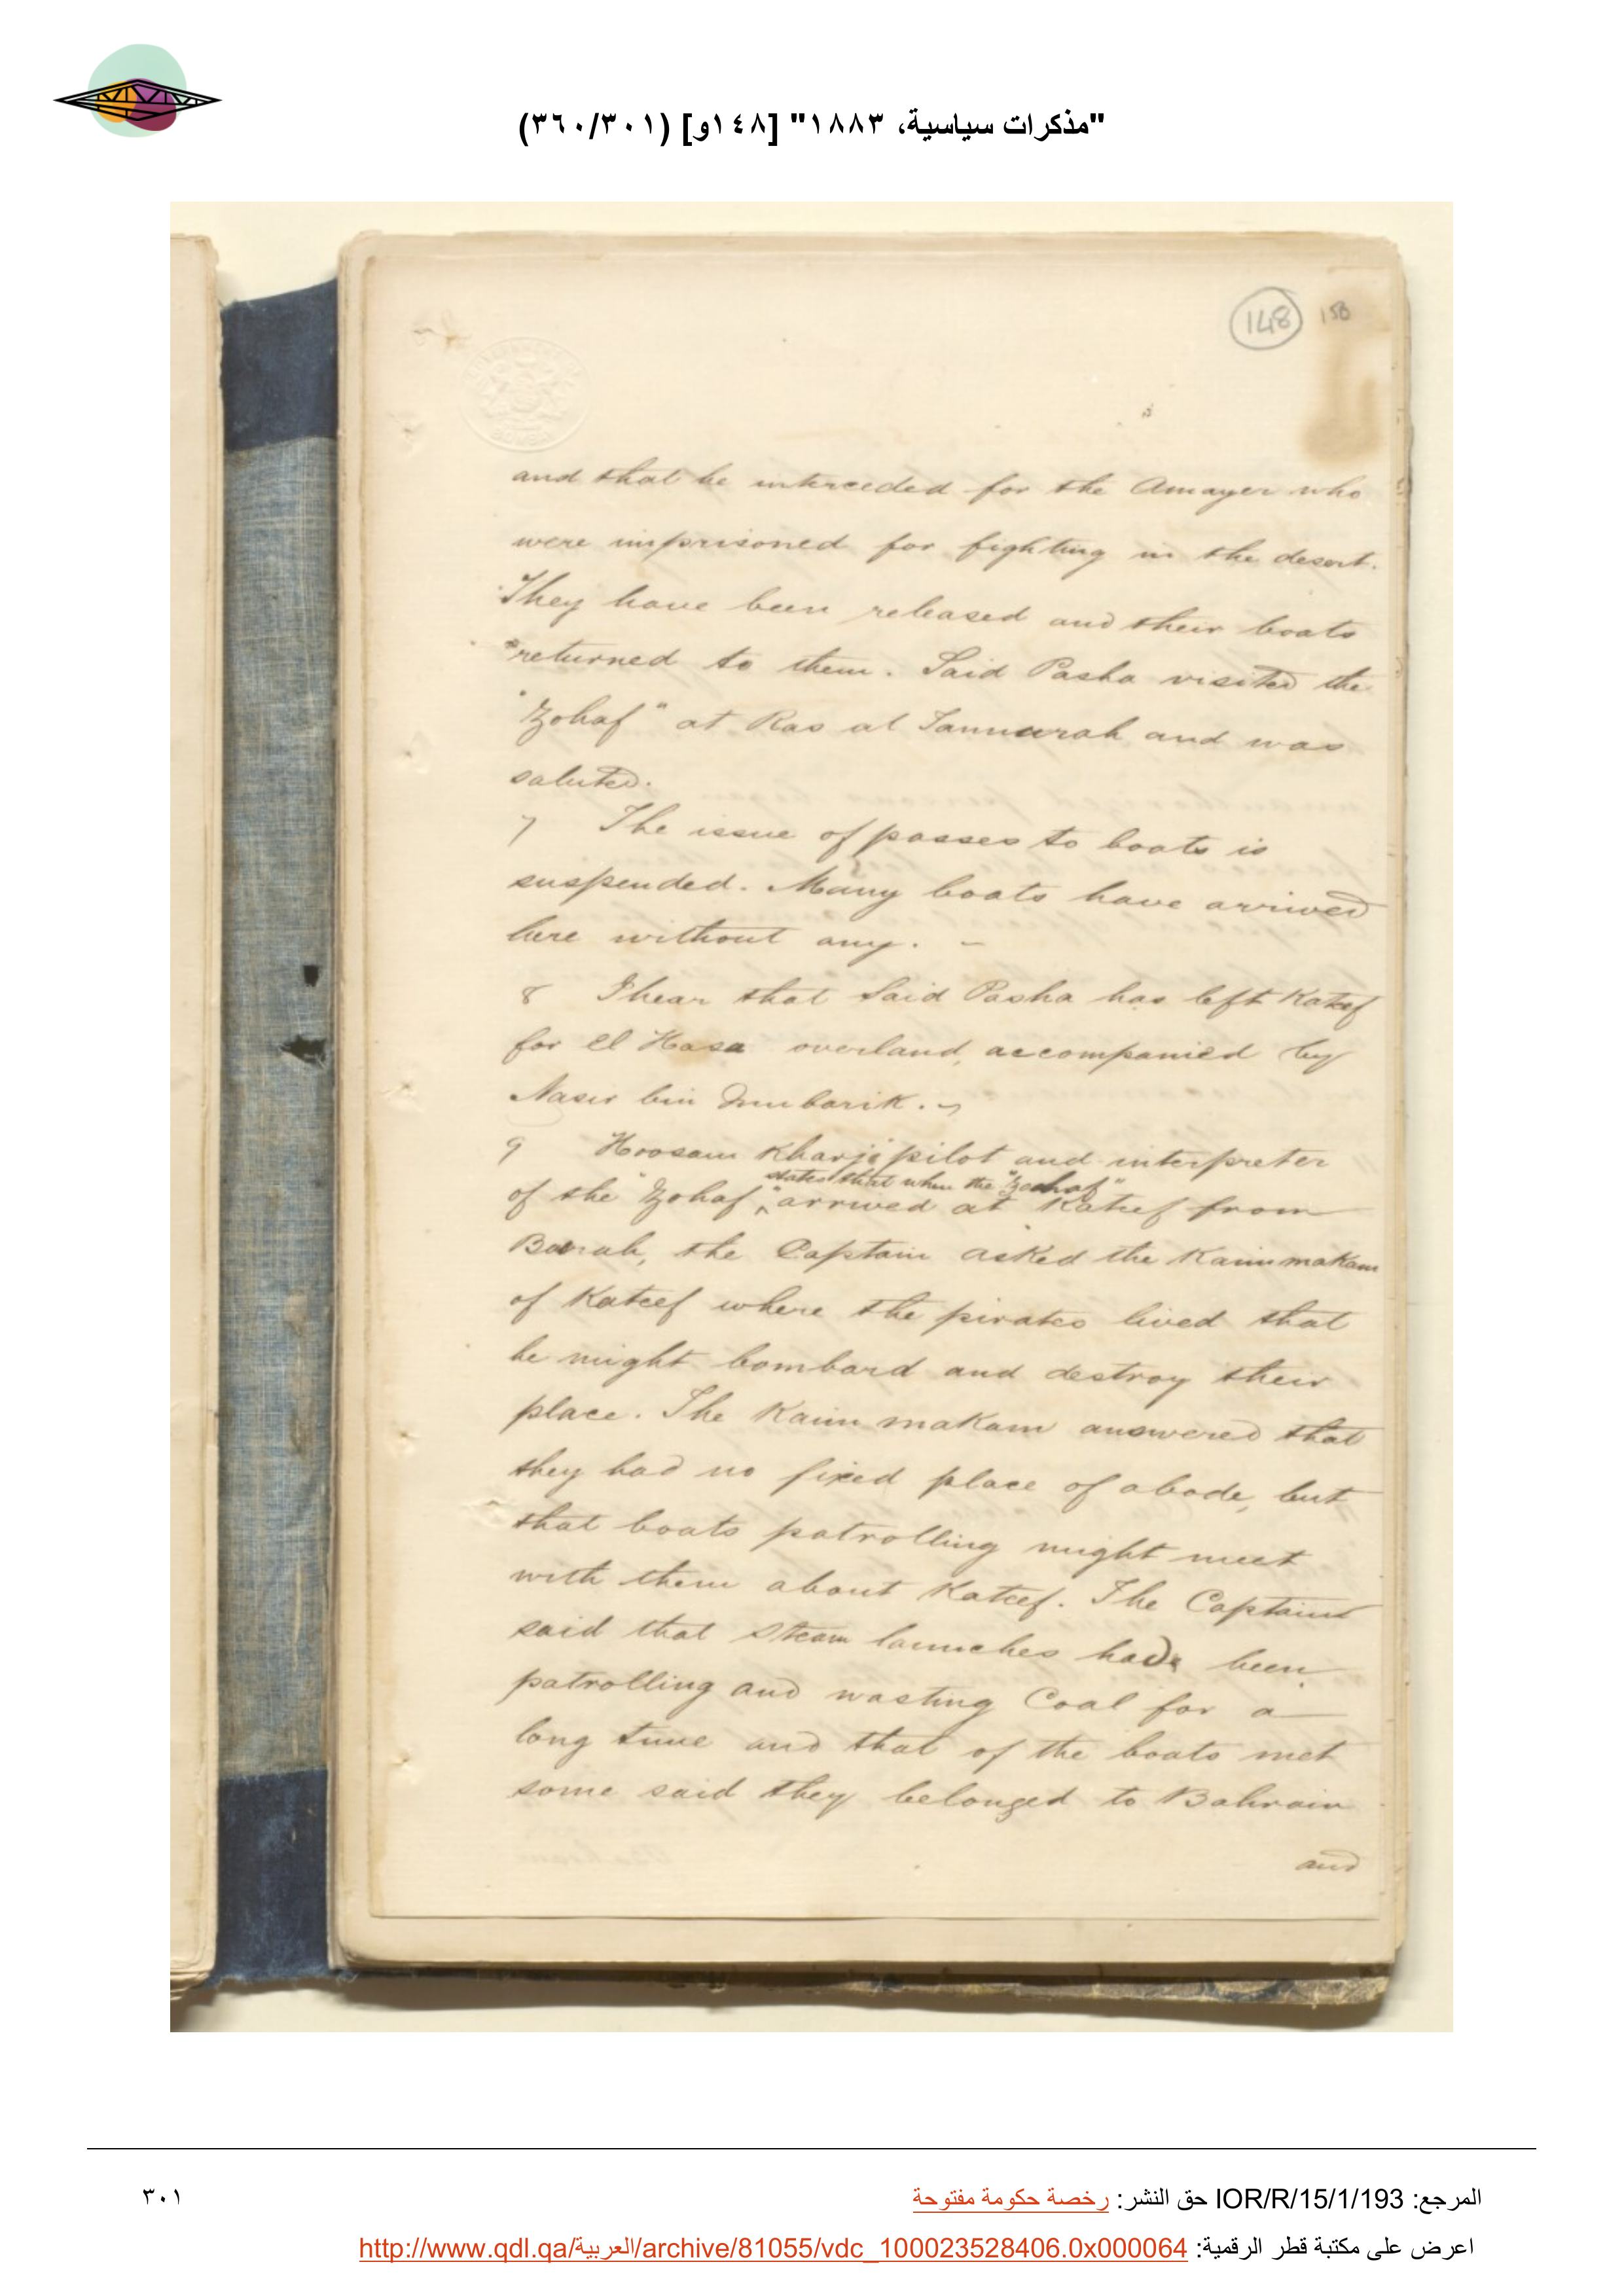 "مذكرات سياسية، ١٨٨٣" [١٤٨و] (٣٦٠/٣٠١)
148 150
and that he interceded for the Amayer who
were imprisoned for fighting in the desert.
They have been released and their boats
returned to them. Said Pasha visited the
"Zohaf" at Ras al Tannurah and was
saluted.
7 The issue of passes to boats is
suspended. Many boats have arrived
here without any. –
8 I hear that Said Pasha has left Kateef
for El Hasa overland, accompanied by
Nasir bin Mubarik.
9 Hoosain Kharji pilot and interpreter
states that when the "Zohaf"
of the "Zohaf", arrived at Kateef from
Busrah, the Captain asked the Kaimmakam
of Kateef where the pirates lived that
he might bombard and destroy their
place. The Kaimmakam answered that
they had no fixed place of abode, but
that boats patrolling might meet
with them about Kateef. The Captain
said that steam launches had been
patrolling and wasting Coal for a
long time and that of the boats met
some said they belonged to Bahrain
and
المرجع: IOR/R/15/1/193 حق النشر: رخصة حكومة مفتوحة
٣٠١
اعرض على مكتبة قطر الرقمية: http://www.qdl.qa/العربية/archive/81055/vdc_100023528406.0x000064